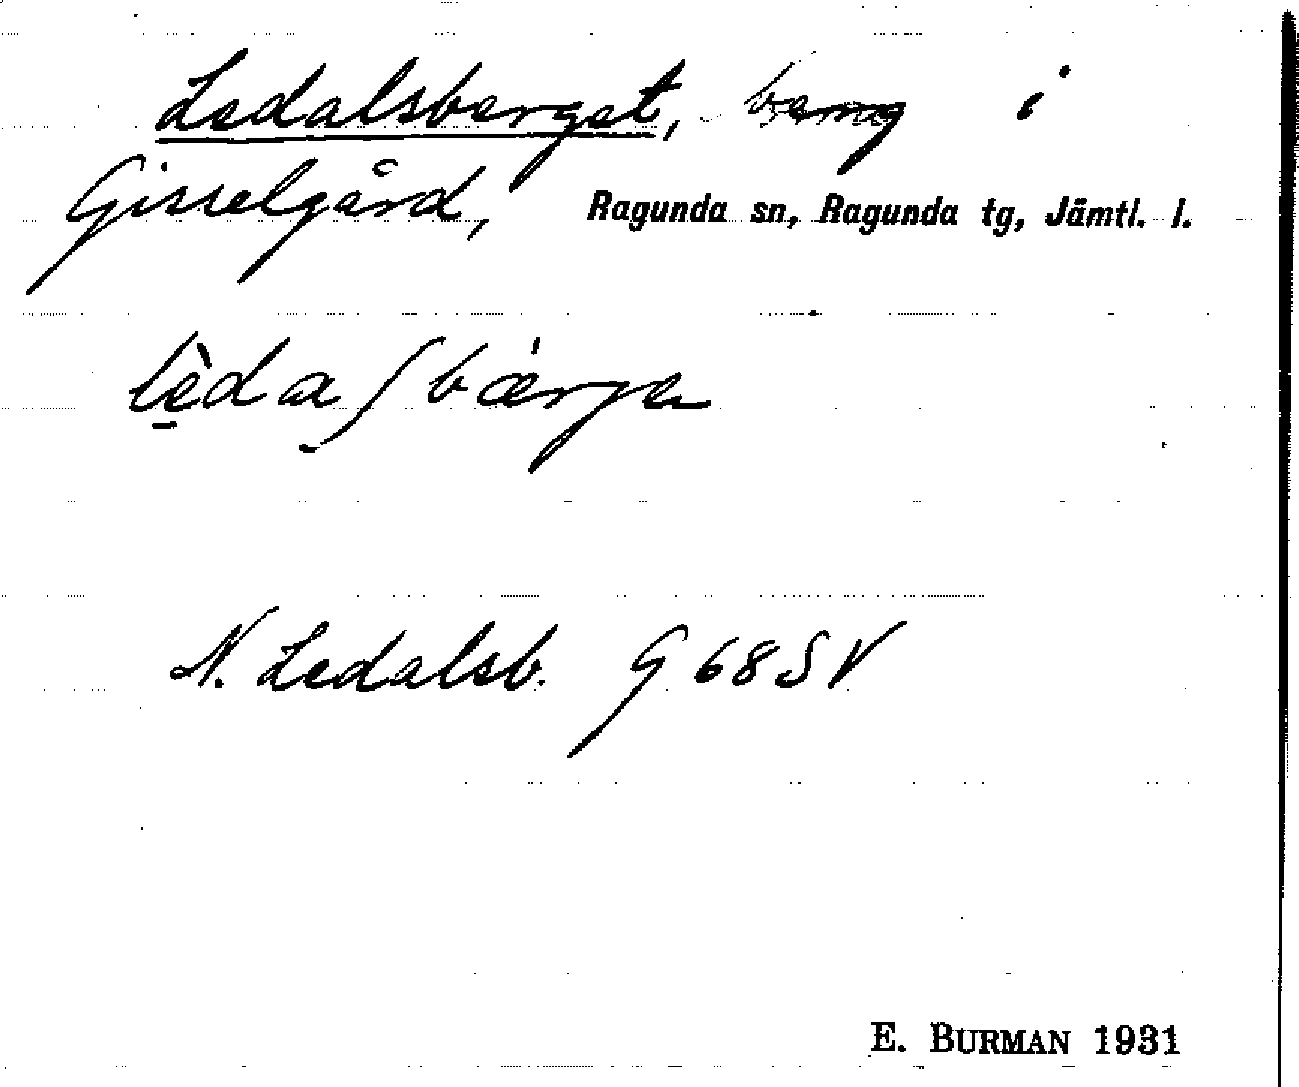 Ledalsberget, berg i
Gisselgård, Ragunda sn, Ragunda tg, Jämtl. l.
lèdaʃbærge
N. Ledalsb. G 68 SV
E. BURMAN 1931